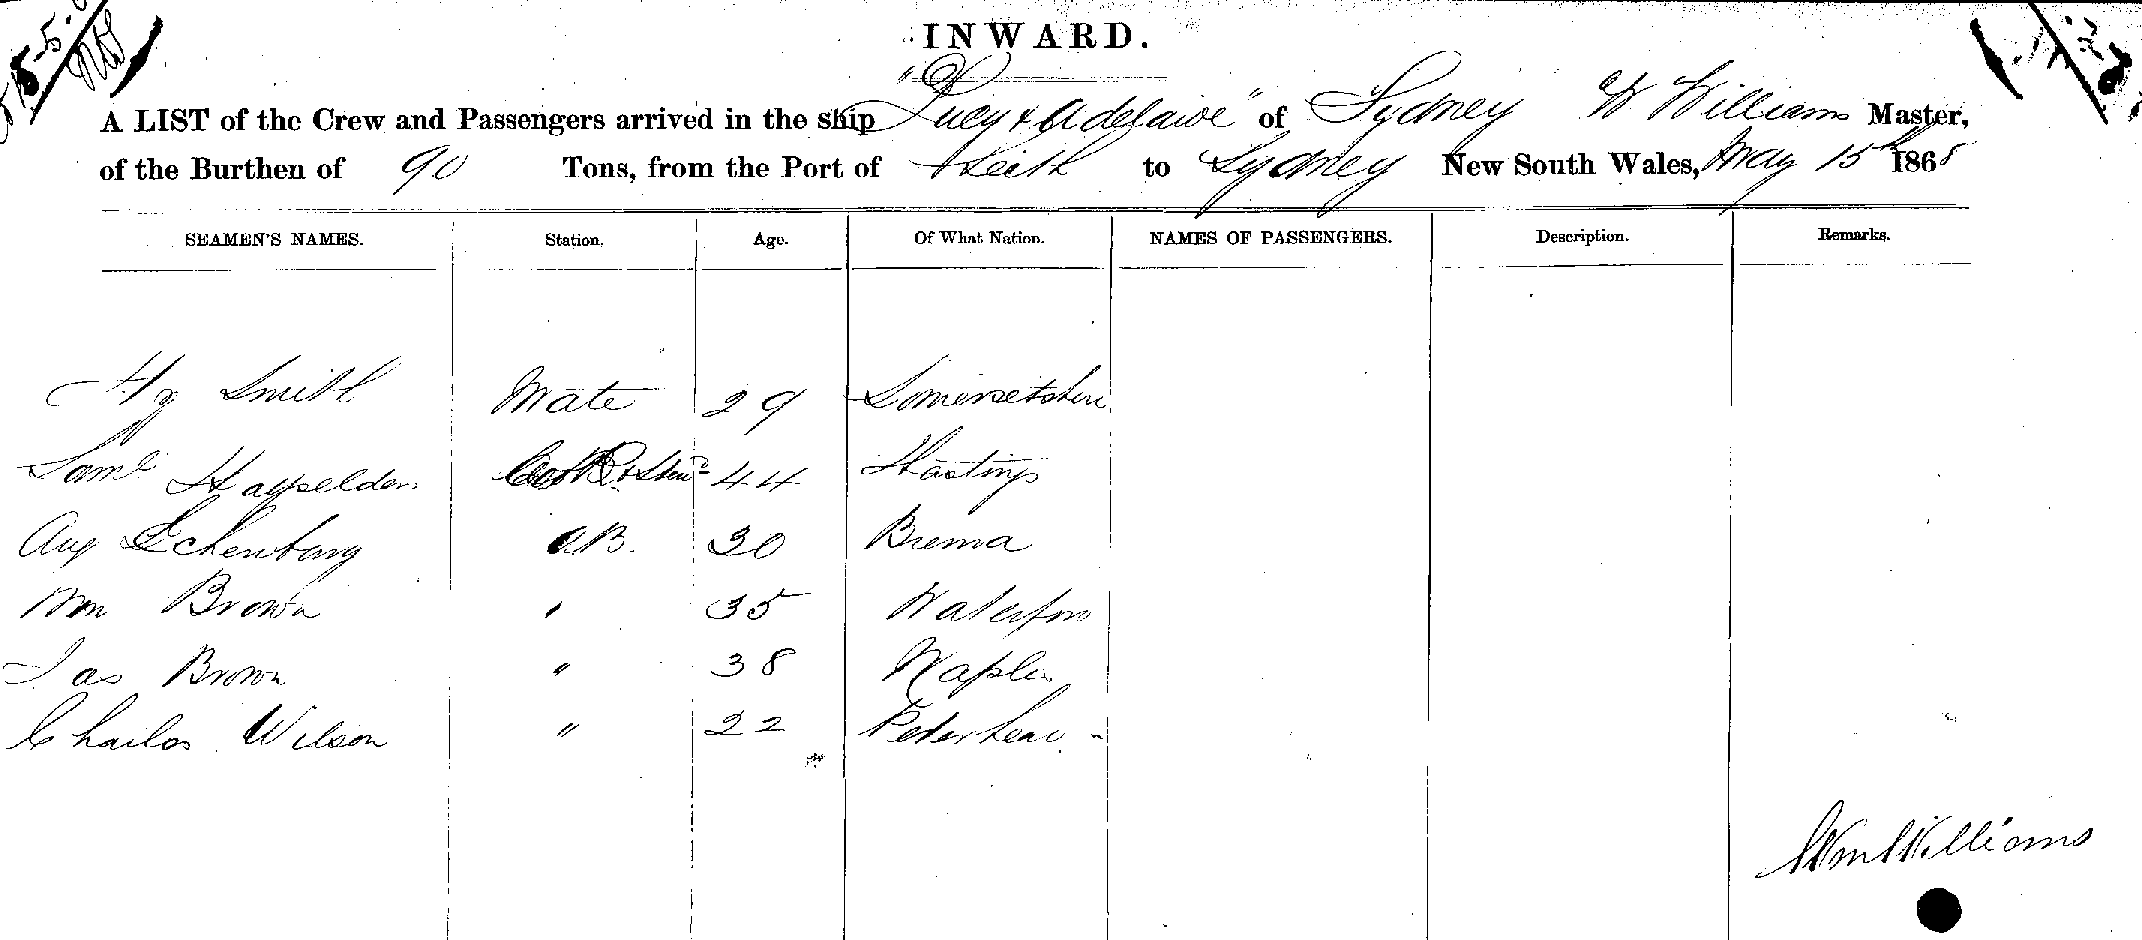 INWARD.
A LIST of the Crew and Passengers arrived in the ship "Lucy & Adelaide" of Sydney W Williams Master,
of the Burthen of 90 Tons, from the Port of Leith to Sydney New South Wales, May 15th 1868
SEAMEN'S NAMES. Station. Age. Of What Nation. NAMES OF PASSENGERS. Description. Remarks.
Hy Smith Mate 29 Somersetshire
Saml Hayselden Cook & Stewd 44 Hastings
Aug Echenbarg AB. 30 Brema
Wm Brown " 35 Waterford
Jas Brown " 38 Naples
Charles Wilson " 22 Peterhead
Wm Williams